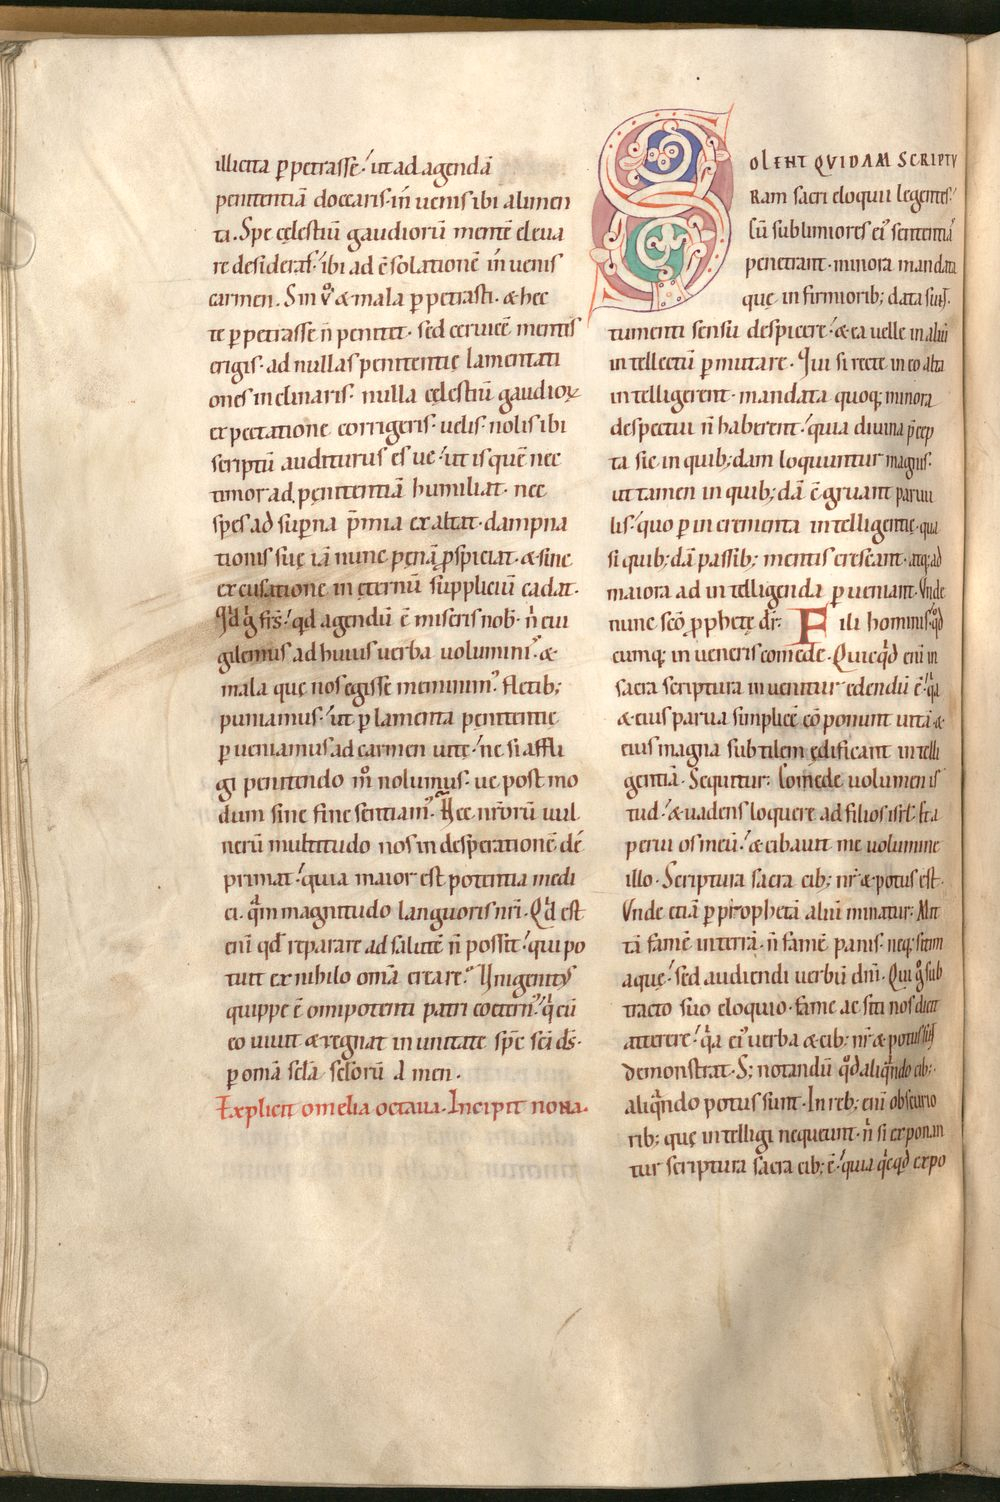 illicita ꝑpetrasse. ut ad agendā
penitentiā doccaris. iñ uenis ibi alimen
ta. Spe cęlestiū gaudiorū mentē eleua
re desideras. ibi ad ꝯsolationē iñ uenis
carmen. Sin v̊ & mala ꝑpetrasti. & hec
te ꝑpetrasse ñ penitet. sed ceruicē mentis
erigis. ad nullas penitentię lamentati
ones inclinaris. nulla cęlestiū gaudioꝝ
expectatione corrigeris. uelis nolis ibi
scriptū auditurus es ue. ut is quē nec
timor ad pęnitentiā humiliat. nec
spes ad supna p̄mia exaltat. dampna
tionis suę iā nunc penā ꝑspiciat. & sine
excusatione in ęternū suppliciū cadat.
Qd g̊ frs. qd agendū ē miseris nob. ñ eui
gilemus ad huius uerba uoluminis. &
mala que nos egisse meminim᾿. fletib;
puniamus. ut ꝑ lamenta penitentię
ꝑueniamus ad carmen uitę. ne si affli
gi penitendo m̊ nolumus. ue post mo
dum sine fine sentiam᾿. Hec nr̄orū uul
nerū multitudo nos in desperationē de
primat. quia maior est potentia medi
ci. qͣm magnitudo languoris nr̄i. Qd est
enī qd reparare ad salutē ñ possit. qui po
tuit ex nihilo om̄a creare. Unigenit᾿
quippe ē omipotenti patri coetern᾿. q̇ cū
eo uiuit & regnat in unitate sp̄c sc̄i d̄s.
ꝑ om̄a sc̄la sc̄lorū Amen.
Explicit omelia octaua. Incipit nona.
SOLENT QVIDAM SCRIPTV
RAM sacri eloquii legentes.
Cū sublimiores ei᾿ sententiā
penetrant. minora mandata
quę infirmiorib; data sunt.
tumenti sensu despicere. & ea uelle in aliū
intellectū ꝑmutare. Qui si recte in eo alta
intelligerent. mandata quoq; minora
despectui ñ haberent. quia diuina p̄cep
ta sic in quib;dam loquuntur magnis.
ut tamen in quib;dā ꝯgruant paruu
lis. quo ꝑ incrementa intelligentię. qua
si quib;dā passib; mentis crescant. atq; ad
maiora ad intelligenda ꝑueniant. Vnde
nunc sc̄o ꝓphetę dr̄: Fili hominis. qd
cumq; inueneris comede. Quicq̇d enī in
sacra scriptura inuenitur edendū ē. qͣa
& eius parua simplicē cōponunt uitā. &
eius magna subtilem ędificant intelli
gentiā. Sequitur: Comede uolumen is
tud. & uadens loquere ad filios isrl. Et a
perui os meū. & cibauit me uolumine
illo. Scriptura sacra cib; nr̄ & potus est.
Vnde etiā ꝑ prophetā aliū minatur: Mit
tā famē in terrā. ñ famē panis. neq; sitim
aquę. sed audiendi uerbū dn̄i. Qui g̊ sub
tracto suo eloquio. fame ac siti nos dicit
atterere. qͣa ei᾿ uerba & cib; nr̄ & potus sit
demonstrat. S; notandū qd aliqͣndo cib;.
aliqͣndo potus sunt. In reb; enī obscurio
rib; quę intelligi nequeunt. ñ si exponan
tur scriptura sacra cib; ē. quia q̇cqd expo